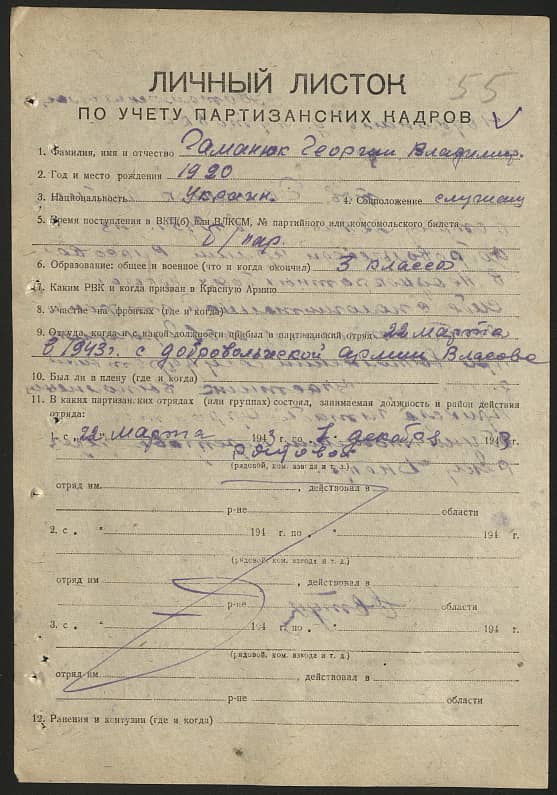 55
ЛИЧНЫЙ ЛИСТОК
ПО УЧЕТУ ПАРТИЗАНСКИХ КАДРОВ
1. Фамилия, имя и отчество Гаманюк Георгий Владимир.
2. Год и место рождения 1920
3. Национальность Украин. 4. Соцположение служащ
5. Время поступления в ВКП(б) или ВЛКСМ, № партийного или комсомольского билета
б/пар.
6. Образование: общее и военное (что и когда окончил) 3 класса
7. Каким РВК и когда призван в Красную Армию
8. Участие на фронтах (где и когда)
9. Откуда, когда и на какой должности прибыл в партизанский отряд 22 марта
в 1943 г. с добровольческой армии Власова
10. Был ли в плену (где и когда)
11. В каких партизанских отрядах (или группах) состоял, занимаемая должность и район действия
отряда:
1. с „22 марта 1943 г. по 7 декабря 1943
рядовой
(рядовой, ком. взвода и т. д.)
отряд им , действовал в
р-не области
2. с „ " 194 г. по „ " 194 г.
(рядовой, ком. взвода и т. д.)
отряд им , действовал в
р-не области
3. с „ " 194 г. по „ " 194 г.
(рядовой, ком. взвода и т. д.)
отряд им. , действовал в
р-не области
12. Ранения и контузии (где и когда)